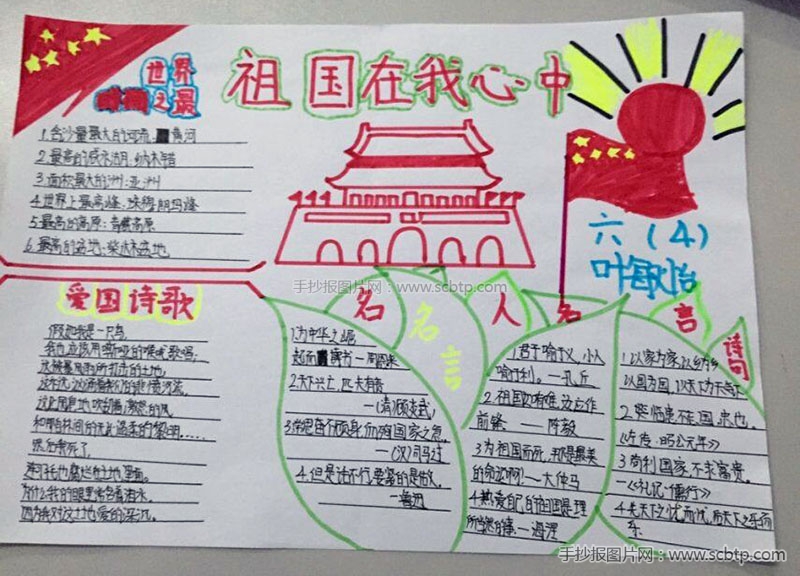 祖国在我心中
世界
之最
1.含沙量最大的河流:黄河
2.最高的咸水湖:纳木错
3.面积最大的洲:亚洲
4.世界上最高峰:珠穆朗玛峰
5.最高的高原:青藏高原
6.最高的盆地:柴达木盆地
六(4)
手抄报图片网:www.scbtp.com
爱国诗歌
假如我是一只鸟,
我也应该用嘶哑的喉咙歌唱:
这被暴风雨所打击的土地,
这无止息地吹刮着激怒的风,
和那来自林间的无比温柔的黎明……
然后我死了,
连羽毛也腐烂在土地里面。
为什么我的眼里常含着泪水,
因为我对这土地爱的深沉。
名名言
1.为中华之崛
起而读书—周恩来
2.天下兴亡,匹夫有责
—(清)顾炎武
3.常思奋不顾身,而殉国家之急。
—(汉)司马迁
4.但是话不行,要紧的是做。
—鲁迅
人名
1.君子喻于义,小人
喻于利。—孔丘
2.祖国如有难,汝应作
前锋—陈毅
3.为祖国而死,那是最美
的命运啊!—大仲马
言诗句
1.以家为家,以乡为乡,
以国为国,以天下为天下
2.临患不忘国,忠也。
《左传·昭公元年》
3.苟利国家,不求富贵。
—《礼记·儒行》
4.先天下之忧而忧,后天下之乐而
乐
手抄报图片网:www.scbtp.com